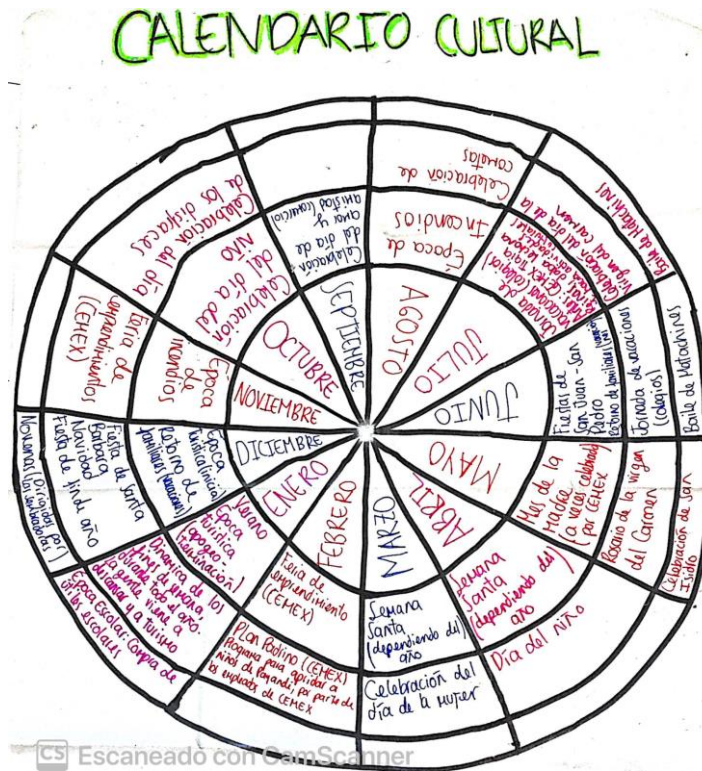 CALENDARIO CULTURAL
ENERO
Verano
Época
Turística
(apogeo
terminación)
Dinámica de los
fines de semana
durante todo el año.
la gente viene a
descansar y a turismo
Época Escolar: Compra de
útiles escolares
FEBRERO
Feria de
emprendimiento
(CEMEX)
Plan Padrino (CEMEX)
Programa para apadrinar a
niños de Payandé, por parte de
los empleados de CEMEX
MARZO
Semana
Santa
(dependiendo del)
año
Celebración del
día de la mujer
ABRIL
Semana
Santa
(dependiendo del)
año
Día del niño
MAYO
Mes de la
Madre
(a veces celebrado)
por CEMEX
Rosario de la virgen
del Carmen
Celebración de San
Isidro
JUNIO
Fiestas de
San Juan - San
Pedro
Retorno de familiares
Jornada de vacaciones
(colegios)
Baile de Matachines
JULIO
Jornada de
vacaciones (colegios)
Celebración del día de la
virgen del carmen
Baile de Matachines
AGOSTO
Época de
Incendios
Celebración de
cometas
SEPTIEMBRE
Celebración
del día de
amor y
amistad (comercio)
OCTUBRE
Celebración
del día del
niño
Celebración del día
de los disfraces
NOVIEMBRE
Época
de
incendios
Feria de
emprendimientos
(CEMEX)
DICIEMBRE
Época
turística (inicio)
Retorno de
familiares (vacaciones)
Fiesta de Santa
Bárbara
Navidad
Fiesta de fin de año
Novenas (Dirigidas por)
las sembradoras
CS Escaneado con CamScanner